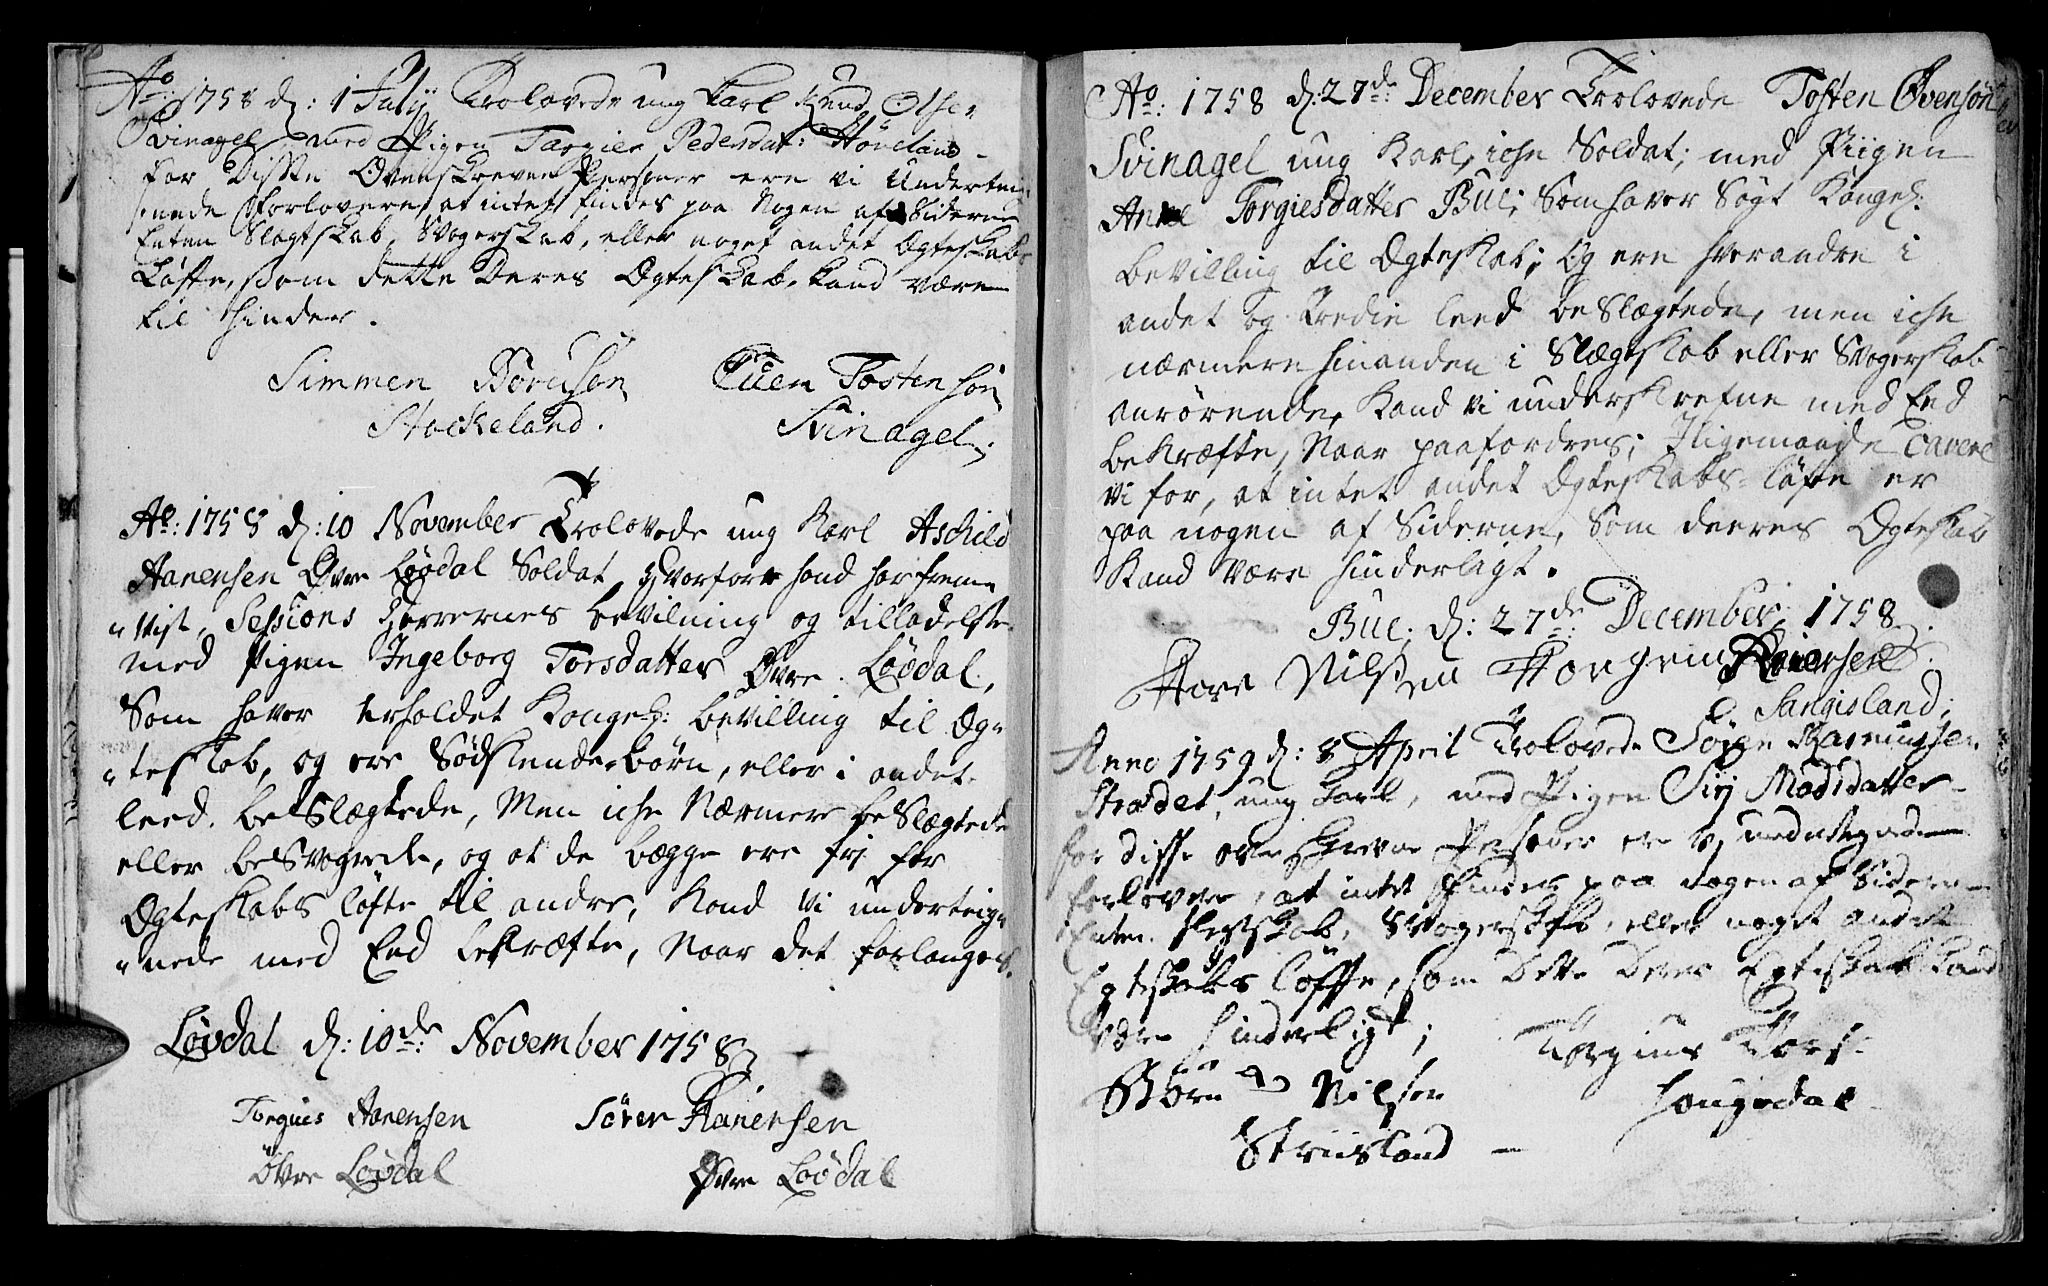 Ao: 1758 d: 1 July Trolovede ung Karl Knud Olsen
Svinagel, med Pigen Targier Pedersdat: Höneland
For Disse Ovenskrevene Personer ere vi Underteig-
nede Forlovere, at intet findes paa Nogen af Siderne
Enten Slegtskab, Svogerskab, eller noget andet Ægteskabs
Löfte, som dette Deres Ægteskab, kand være
til hinder.
Simmen Börusen Even Tostensön
Stockeland. Svinagel.
Ao: 1758 d: 10 November Trolovede ung Karl Aschild
Aanensen Øvre Löödal Soldat, Hvorfore hand har frem-
"vist, Sessions Herrernes bevilning og tilladelse
med Pigen Ingeborg Torsdatter Øvre Löödal,
Som haver erholdet Kongel: bevilling til Æg-
"teskab, og ere Södskendebörn, eller i andet
leed beslægtede, Men iche Nærmere beslægtede
eller besvogrede, og at de begge ere frj for
Ægteskabs löfte til andre, Kand vi underteig-
"nede med Eed bekræfte, Naar det forlanges.
Lövdal d: 10de: November 1758
Torgius Aanensen Sören Aanensen
Övre Lövdal Øvre Loödal
Ao: 1758 d: 27de: December Trolovede Tosten Øvensön
Svinagel ung Karl, iche Soldat; med Piigen
Anne Torgiesdatter Bue; Som haver Sögt Kongel:
bevilling til Ægteskab; Og ere hverandre i
andet og tredie leed beslægtede, men iche
nærmere hinanden i Slægtskab eller Svogerskab
anrörende, Kand vi underskrefne med Eed
bekræfte, Naar paafordres; Iligemaade Cavere
vi for, at intet andet Ægteskabs-löfte er
paa nogen af Siderne, Som deeres Ægteskab
Kand være hinderligt.
Bue; d: 27de: December 1758
Tore Nilsen Torgrim Reiersen
Sangisland;
Anno 1759 d: 8 April Trolovede Sören Rasmussen
Strædet, ung Karl, med Pigen Sirj Madsdatter
for disse ovenskrevne Personer ere vj undertegnede
forlovere, at intet findes paa nogen af Siderne
Enten slegtskab, Svogerskab, eller noget andet
Egteskabs löffte, som dette deres Egteskab Kand
være hinderligt;
Börn Nilsen Torgius Tors:
Striisland Hougedal